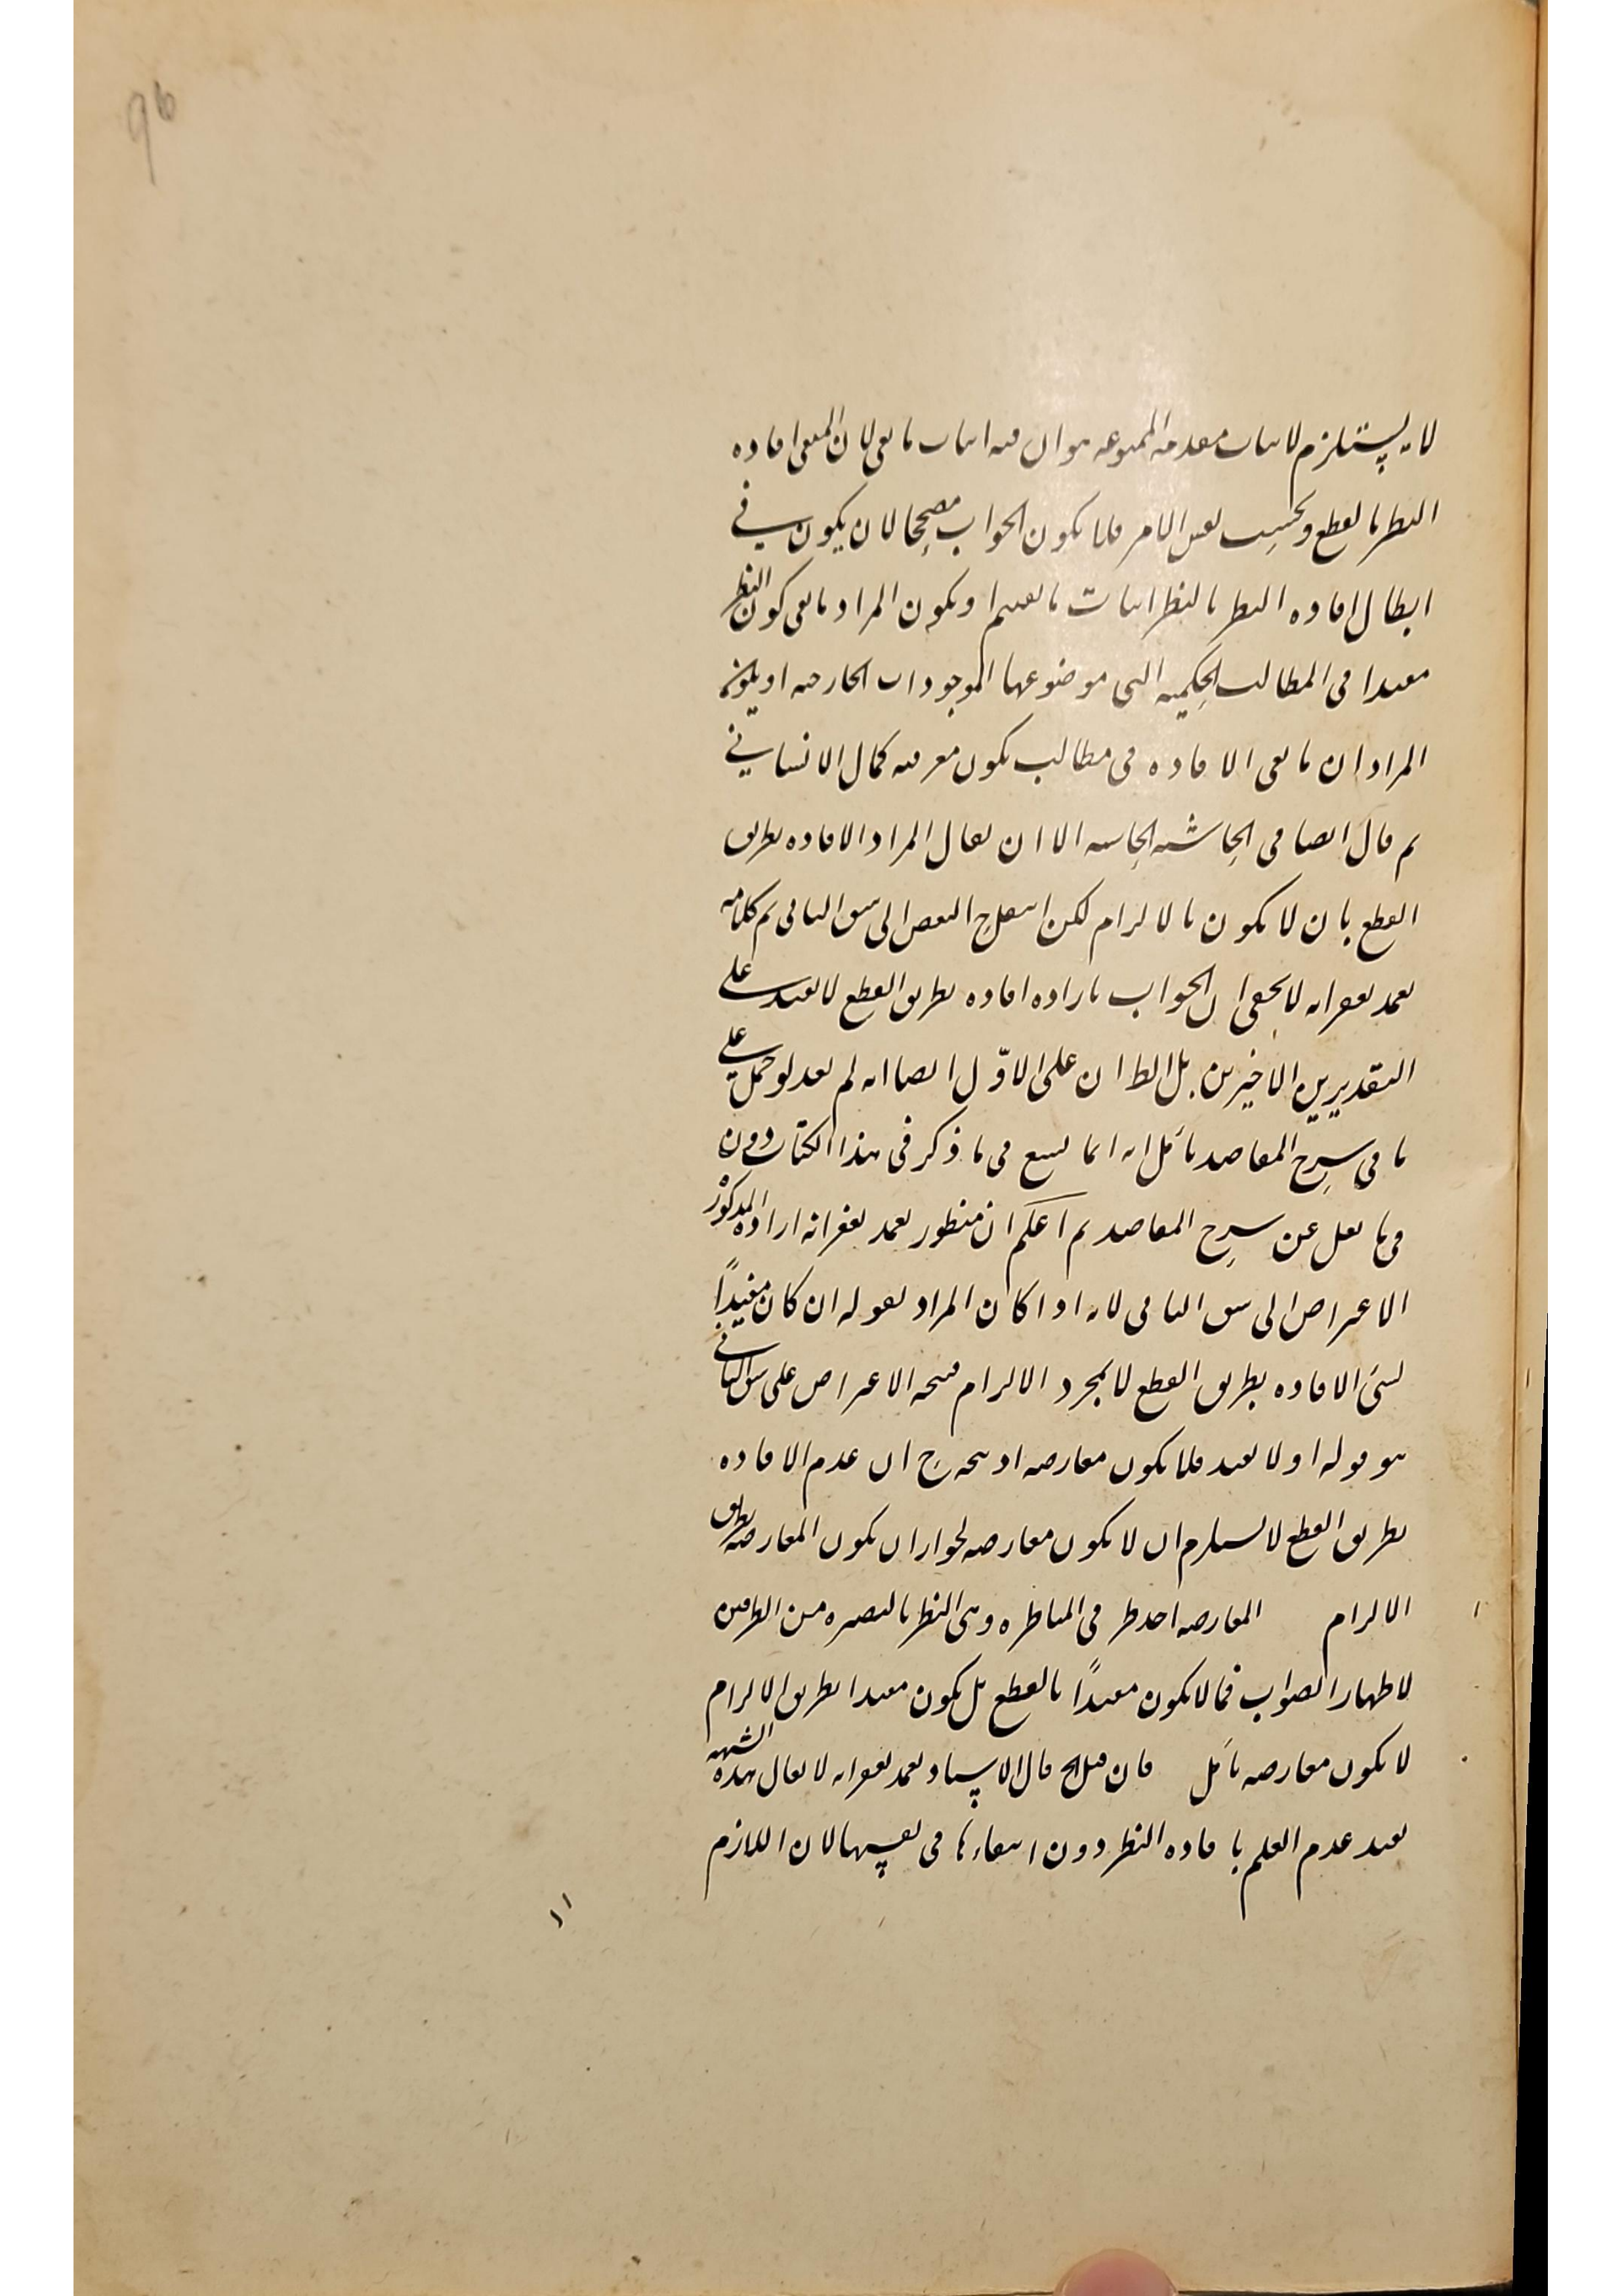 لانه يستلزم لاثبات مقدمه الممنوعه هو ان فيه اثبات ما نفى لان المنفى افاده
النظر بالقطع وبحسب نفس الامر فلا يكون الجواب مصححا لان يكون في
ابطال افاده النظر بالنظر اثبات ما نفيتم او يكون المراد ما نفى كون النظر
مفيدا فى المطالب الحكميه التى موضوعها الموجودات الخارجيه او يكون
المراد ان ما نفى الافاده فى مطالب يكون معرفته كمال الانساني
ثم قال ايضا فى الحاشيه الا ان يقال المراد الافاده بطريق
القطع بان لا يكون بالالزام لكن النقض الى شق الثانى تم كلامه
تغمد بغفرانه لا يخفى ان الجواب باراده افاده بطريق القطع لا يفيد على
التقديرين الاخيرين بل الظ ان على الاوّل ايضا انه لم يفد لو حمل على
ما فى شرح المقاصد تأمل انه انما يسع فى ما ذكر فى هذا الكتاب دون
فى ما نقل عن شرح المقاصد ثم اعلم ان منظور تغمد بغفرانه اراده المذكور
الاعتراض الى شق الثانى لانه اذا كان المراد بقوله ان كان مفيداً
لشئ الافاده بطريق القطع لا بمجرد الالزام فيتجه الاعتراض على شق الثاني
هو قوله او لا يفيد فلا يكون معارضه اذ يتجه ح ان عدم الافاده
بطريق القطع لا يستلزم ان لا يكون معارضه لجواز ان يكون المعارضه بطريق
الالزام المعارضه احد طر فى المناظره وهى النظر بالبصيره من الطرفين
لاظهار الصواب فما لا يكون مفيداً بالقطع بل يكون مفيدا بطريق الالزام
لا يكون معارضه تأمل فان قيل الخ قال الاستاد تغمد بغفرانه لا يقال هذه الشبهه
يفيد عدم العلم بافاده النظر دون انتفاءها فى نفسها لان اللازم